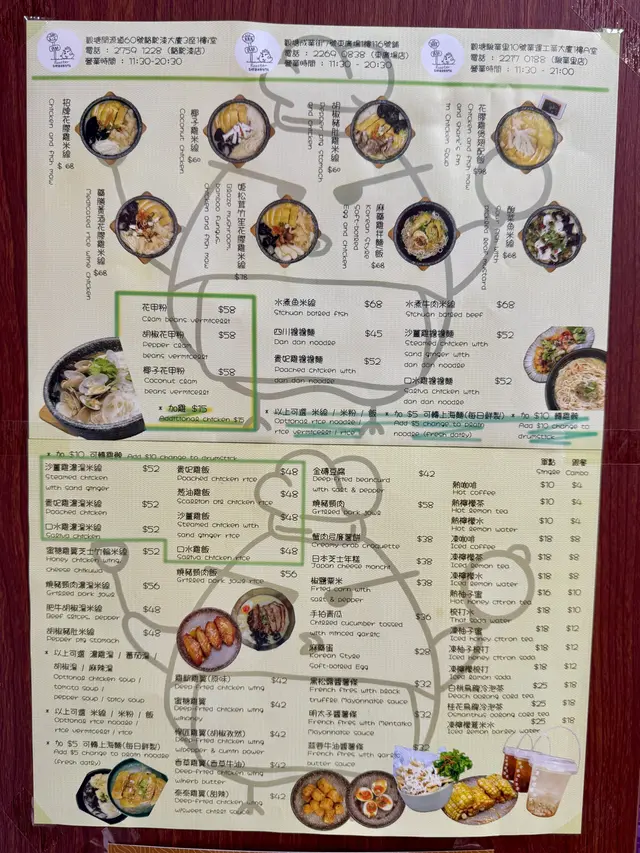 觀塘開源道60號駱駝漆大廈3座1樓H室
電話 : 2759 1228 (駱駝漆店)
營業時間 : 11:30-20:30
電話 : 2269 0838 (東廣場店)
營業時間 : 11:30 - 20:30
電話 : 2217 0188 (駿業店)
營業時間 : 11:30 - 21:00
招牌花膠雞米線
Chicken and fish maw
$68
椰子雞米線
Coconut chicken
$60
胡椒豬肚雞米線
$60
花膠雞煲翅配飯
Chicken and fish maw and shark's fin in chicken soup
$98
Medicated rice wine chicken
$68
姬松茸竹笙花膠雞米線
Blaze mushroom, bamboo fungus, chicken and fish maw
$78
麻藥雞拌麵/飯
Korean style soft-boiled egg and chicken
$68
酸菜魚米線
$68
花甲粉 $58
Clam beans vermicelli
胡椒花甲粉 $58
Pepper clam
beans vermicelli
椰子花甲粉 $58
Coconut clam
beans vermicelli
* 加雞 $15
Additional chicken $15
水煮魚米線 $68
Sichuan boiled fish
四川擔擔麵 $45
Dan dan noodle
貴妃雞擔擔麵 $52
Poached chicken with
dan dan noodle
水煮牛肉米線 $68
Sichuan boiled beef
沙薑雞擔擔麵 $52
Steamed chicken with
sand ginger with
dan dan noodle
口水雞擔擔麵 $52
Saliva chicken with
dan dan noodle
* 以上可選 米線 / 米粉 / 飯
Optional rice noodle /
rice vermicelli / rice
* 加 $5 可轉上海麵(每日鮮製)
Add $5 change to plain
noodle (fresh daily)
* 加 $10 轉雞髀
Add $10 change to
drumstick
* 加 $10 可轉雞髀 Add $10 change to drumstick
沙薑雞濃湯米線 $52
Steamed chicken
with sand ginger
貴妃雞濃湯米線 $52
Poached chicken
口水雞濃湯米線 $52
Saliva chicken
蜜糖雞翼芝士竹輪米線 $52
Honey chicken wing,
cheese chikuwa
燒豬頸肉濃湯米線 $56
Grilled pork jowls
肥牛胡椒湯米線 $48
Beef slices, pepper
胡椒豬肚米線 $48
Pepper pig stomach
* 以上可選 濃雞湯 / 蕃茄湯 /
胡椒湯 / 麻辣湯
Optional chicken soup /
tomato soup /
pepper soup / spicy soup
* 以上可選 米線 / 米粉 / 飯
Optional rice noodle /
rice vermicelli / rice
* 加 $5 可轉上海麵(每日鮮製)
Add $5 change to plain noodle
(fresh daily)
貴妃雞飯 $48
Poached chicken rice
蔥油雞飯 $48
Scallion oil chicken rice
沙薑雞飯 $48
Steamed chicken with
sand ginger rice
口水雞飯 $48
Saliva chicken rice
燒豬頸肉飯 $56
Grilled pork jowls rice
炸雞翼(原味) $42
Deep-fried chicken wing
蜜糖雞翼 $42
Deep-fried chicken wing
w/honey
$42
Deep-fried chicken wing
w/pepper & cumin power
香草雞翼(香草牛油) $42
Deep-fried chicken wing
w/herb butter
泰泰雞翼(甜辣) $42
Deep-fried chicken wing
w/sweet chilli sauce
金磚豆腐 $42
Deep-fried beancurd
with salt & pepper
燒豬頸肉 $58
Grilled pork jowls
蟹肉忌廉薯餅
Creamy crab croquette
日本芝士年糕
Japan cheese mochi $38
椒鹽粟米 $38
Fried corn with
salt & pepper
手拍青瓜 $36
Chilled cucumber tossed
with minced garlic
麻藥蛋 $28
Korean style
soft-boiled egg
黑松露醬薯條 $32
French fries with black
truffle mayonnaise sauce
明太子醬薯條 $32
French fries with mentaiko
mayonnaise sauce
蒜蓉牛油醬薯條 $32
French fries with garlic
butter sauce
單點 跟餐
Single Combo
熱咖啡 $10 $4
Hot coffee
熱檸檬茶 $10 $4
Hot lemon tea
熱檸檬水 $10 $4
Hot lemon water
凍咖啡 $18 $8
Iced coffee
凍檸檬茶 $18 $8
Iced lemon tea
凍檸檬水 $18 $8
Iced lemon water
熱柚子蜜 $16 $10
Hot honey citron tea
梳打水 $18 $10
Thai soda water
凍柚子蜜 $18 $12
Iced honey citron tea
凍柚子梳打 $18 $12
Iced honey citron soda
凍檸檬梳打 $18 $12
Iced lemon soda
白桃烏龍冷泡茶 $25 $18
Peach oolong cold tea
桂花烏龍冷泡茶 $25 $18
Osmanthus oolong cold tea
凍檸檬薏米水 $25 $18
Iced lemon barley water